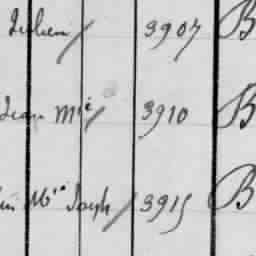 Julien 3907 B
Jean Mie 3910 B
Mie Joseph 3915 B